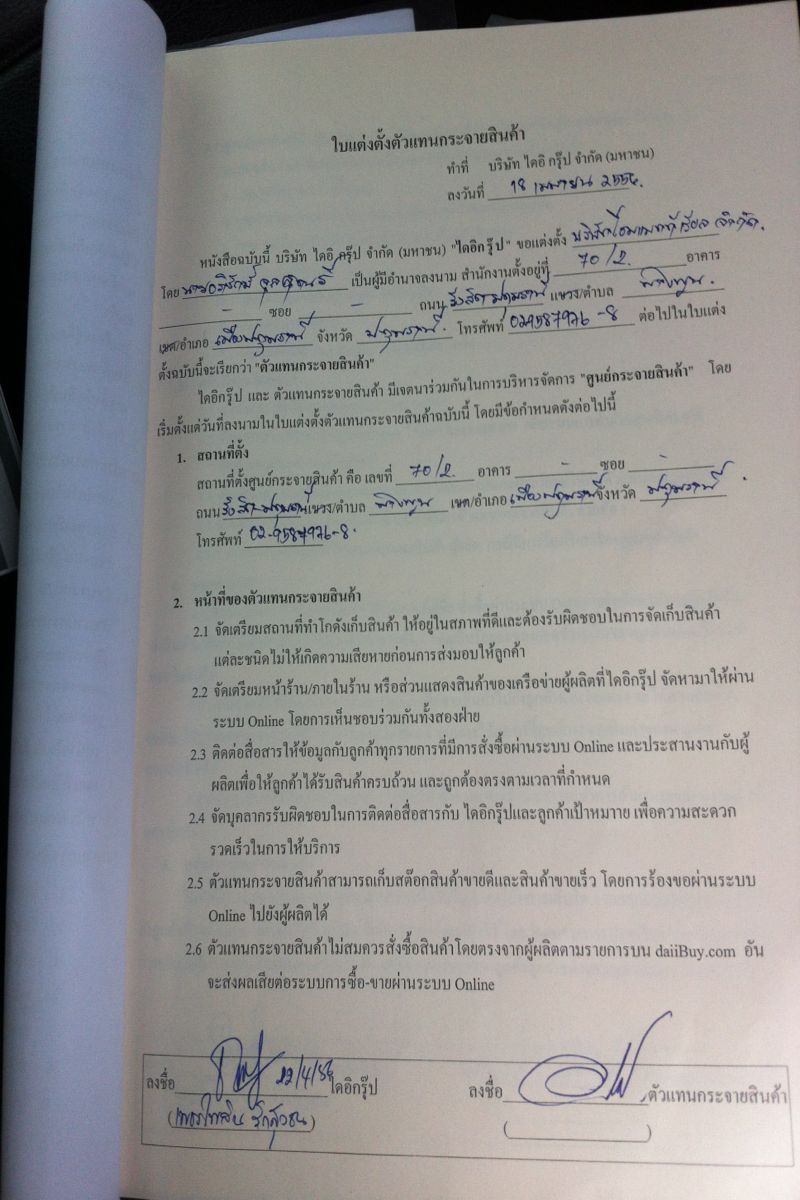 ใบแต่งตั้งตัวแทนกระจายสินค้า
ทำที่ บริษัท ไดอิ กรุ๊ป จำกัด (มหาชน)
ลงวันที่ 18 เมษายน 2556.
หนังสือฉบับนี้ บริษัท ไดอิ กรุ๊ป จำกัด (มหาชน) "ไดอิกรุ๊ป" ขอแต่งตั้ง บริษัท จำกัด.
โดย เป็นผู้มีอำนาจลงนาม สำนักงานตั้งอยู่ที่ 70/2. อาคาร
- ซอย - ถนน รังสิต-ปทุมธานี แขวง/ตำบล
เขต/อำเภอ เมืองปทุมธานี จังหวัด ปทุมธานี. โทรศัพท์ 029587976-8 ต่อไปในใบแต่ง
ตั้งฉบับนี้จะเรียกว่า "ตัวแทนกระจายสินค้า"
ไดอิกรุ๊ป และ ตัวแทนกระจายสินค้า มีเจตนาร่วมกันในการบริหารจัดการ "ศูนย์กระจายสินค้า" โดย
เริ่มตั้งแต่วันที่ลงนามในใบแต่งตั้งตัวแทนกระจายสินค้าฉบับนี้ โดยมีข้อกำหนดดังต่อไปนี้
1. สถานที่ตั้ง
สถานที่ตั้งศูนย์กระจายสินค้า คือ เลขที่ 70/2. อาคาร - ซอย -
ถนน รังสิต-ปทุมธานี แขวง/ตำบล เขต/อำเภอ เมืองปทุมธานี จังหวัด ปทุมธานี.
โทรศัพท์ 02-9587976-8.
2. หน้าที่ของตัวแทนกระจายสินค้า
2.1 จัดเตรียมสถานที่ทำโกดังเก็บสินค้า ให้อยู่ในสภาพที่ดีและต้องรับผิดชอบในการจัดเก็บสินค้า
แต่ละชนิดไม่ให้เกิดความเสียหายก่อนการส่งมอบให้ลูกค้า
2.2 จัดเตรียมหน้าร้าน/ภายในร้าน หรือส่วนแสดงสินค้าของเครือข่ายผู้ผลิตที่ไดอิกรุ๊ป จัดหามาให้ผ่าน
ระบบ Online โดยการเห็นชอบร่วมกันทั้งสองฝ่าย
2.3 ติดต่อสื่อสารให้ข้อมูลกับลูกค้าทุกรายการที่มีการสั่งซื้อผ่านระบบ Online และประสานงานกับผู้
ผลิตเพื่อให้ลูกค้าได้รับสินค้าครบถ้วน และถูกต้องตรงตามเวลาที่กำหนด
2.4 จัดบุคลากรรับผิดชอบในการติดต่อสื่อสารกับ ไดอิกรุ๊ปและลูกค้าเป้าหมาาย เพื่อความสะดวก
รวดเร็วในการให้บริการ
2.5 ตัวแทนกระจายสินค้าสามารถเก็บสต๊อกสินค้าขายดีและสินค้าขายเร็ว โดยการร้องขอผ่านระบบ
Online ไปยังผู้ผลิตได้
2.6 ตัวแทนกระจายสินค้าไม่สมควรสั่งซื้อสินค้าโดยตรงจากผู้ผลิตตามรายการบน daiiBuy.com อัน
จะส่งผลเสียต่อระบบการซื้อ-ขายผ่านระบบ Online
ลงชื่อ 22/4/56 ไดอิกรุ๊ป ลงชื่อ ตัวแทนกระจายสินค้า